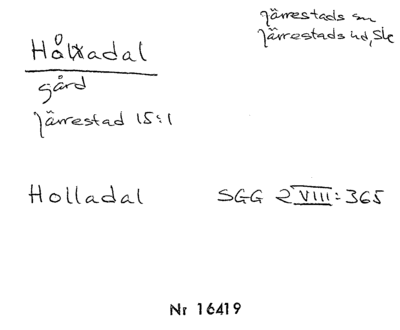 Järrestads sn
Järrestads hd, Sk
gård
Järrestad 15:1
Holladal SGG 2 VIII: 365
Nr 16419